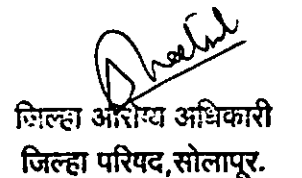 जिल्हा आरोग्य अधिकारी
जिल्हा परिषद,सोलापूर.